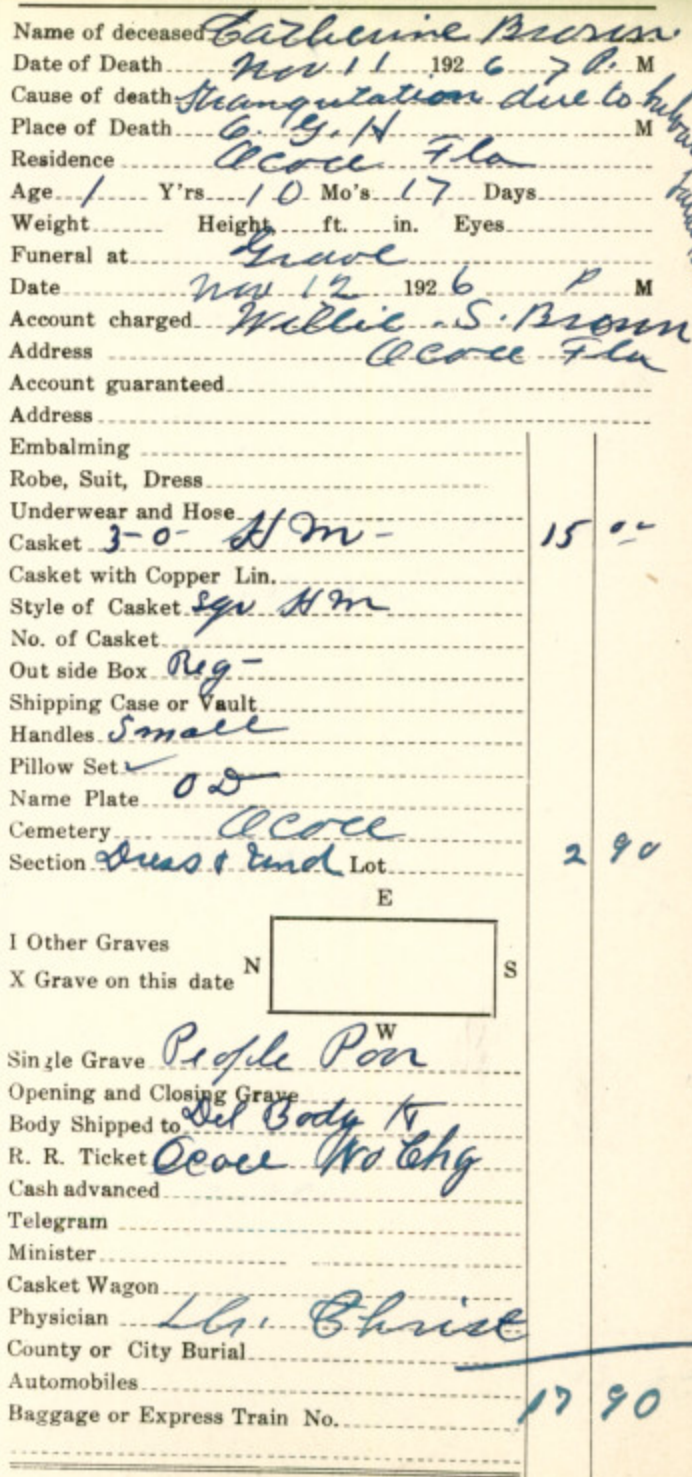 Name of deceased Catherine Brown
Date of Death Nov 11 1926 7 P. M
Cause of death Strangulation due to
Place of Death O. G. H M
Residence Ocoee Fla
Age 1 Y'rs 10 Mo's 17 Days
Weight Height ft. in. Eyes
Funeral at Grave
Date Nov 12 1926 P M
Account charged Willie S. Brown
Address Ocoee Fla
Account guaranteed
Address
Embalming
Robe, Suit, Dress
Underwear and Hose
Casket 3-0- H M - 15 00
Casket with Copper Lin.
Style of Casket Sqr H M
No. of Casket
Out side Box Reg -
Shipping Case or Vault
Handles Small
Pillow Set ✓
Name Plate O D
Cemetery Ocoee
Section Dress & Und Lot 2 90
E
I Other Graves
N S
X Grave on this date
W
Single Grave People Poor
Opening and Closing Grave
Body Shipped to Del Body to
R. R. Ticket Ocoee No Chg
Cash advanced
Telegram
Minister
Casket Wagon
Physician Dr. Christ
County or City Burial
Automobiles
Baggage or Express Train No. 17 90